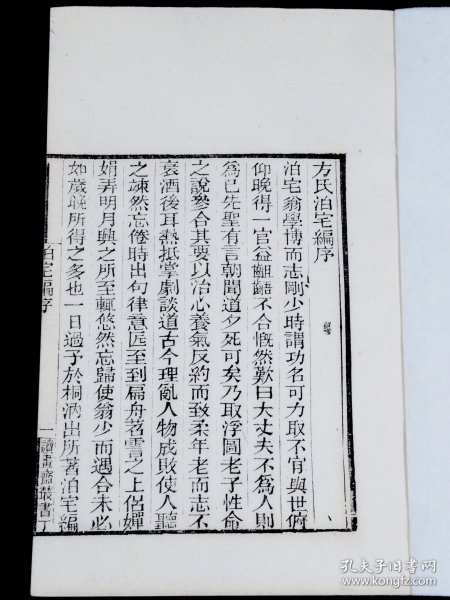 方氏泊宅編序
泊宅翁學博而志剛少時謂功名可力取不肎與世俯
仰晚得一官益齟齬不合慨然歎曰大丈夫不為人則
為己先聖有言朝聞道夕死可矣乃取浮圖老子性命
之說參合其要以治心養氣反約而致柔年老而志不
衰酒後耳熱抵掌劇談道古今理亂人物成敗使人聽
之竦然忘倦時出句律意匠至到扁舟苕霅之上侶嬋
娟弄明月興之所至輒悠然忘歸使翁少而遇合未必
如歲晚所得之多也一日過予於桐汭出所著泊宅編
泊宅編序
一
讀畫齋叢書
孔夫子旧书网
www.kongfz.com